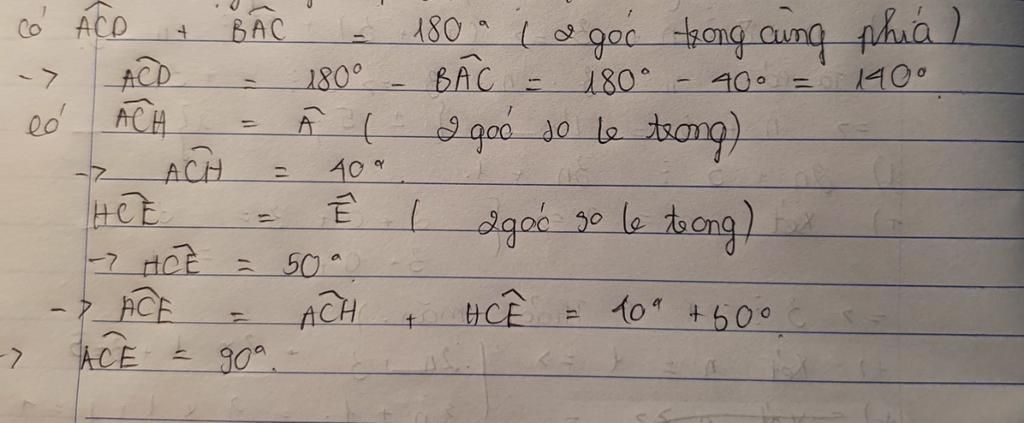 có ACD + BAC = 180° ( 2 góc trong cùng phía )
-> ACD = 180° - BAC = 180° - 40° = 140°
có ACH = A ( 2 góc so le trong)
-> ACH = 40°.
HCE = E ( 2 góc so le trong)
-> HCE = 50°
-> ACE = ACH + HCE = 40° + 50°
-> ACE = 90°.